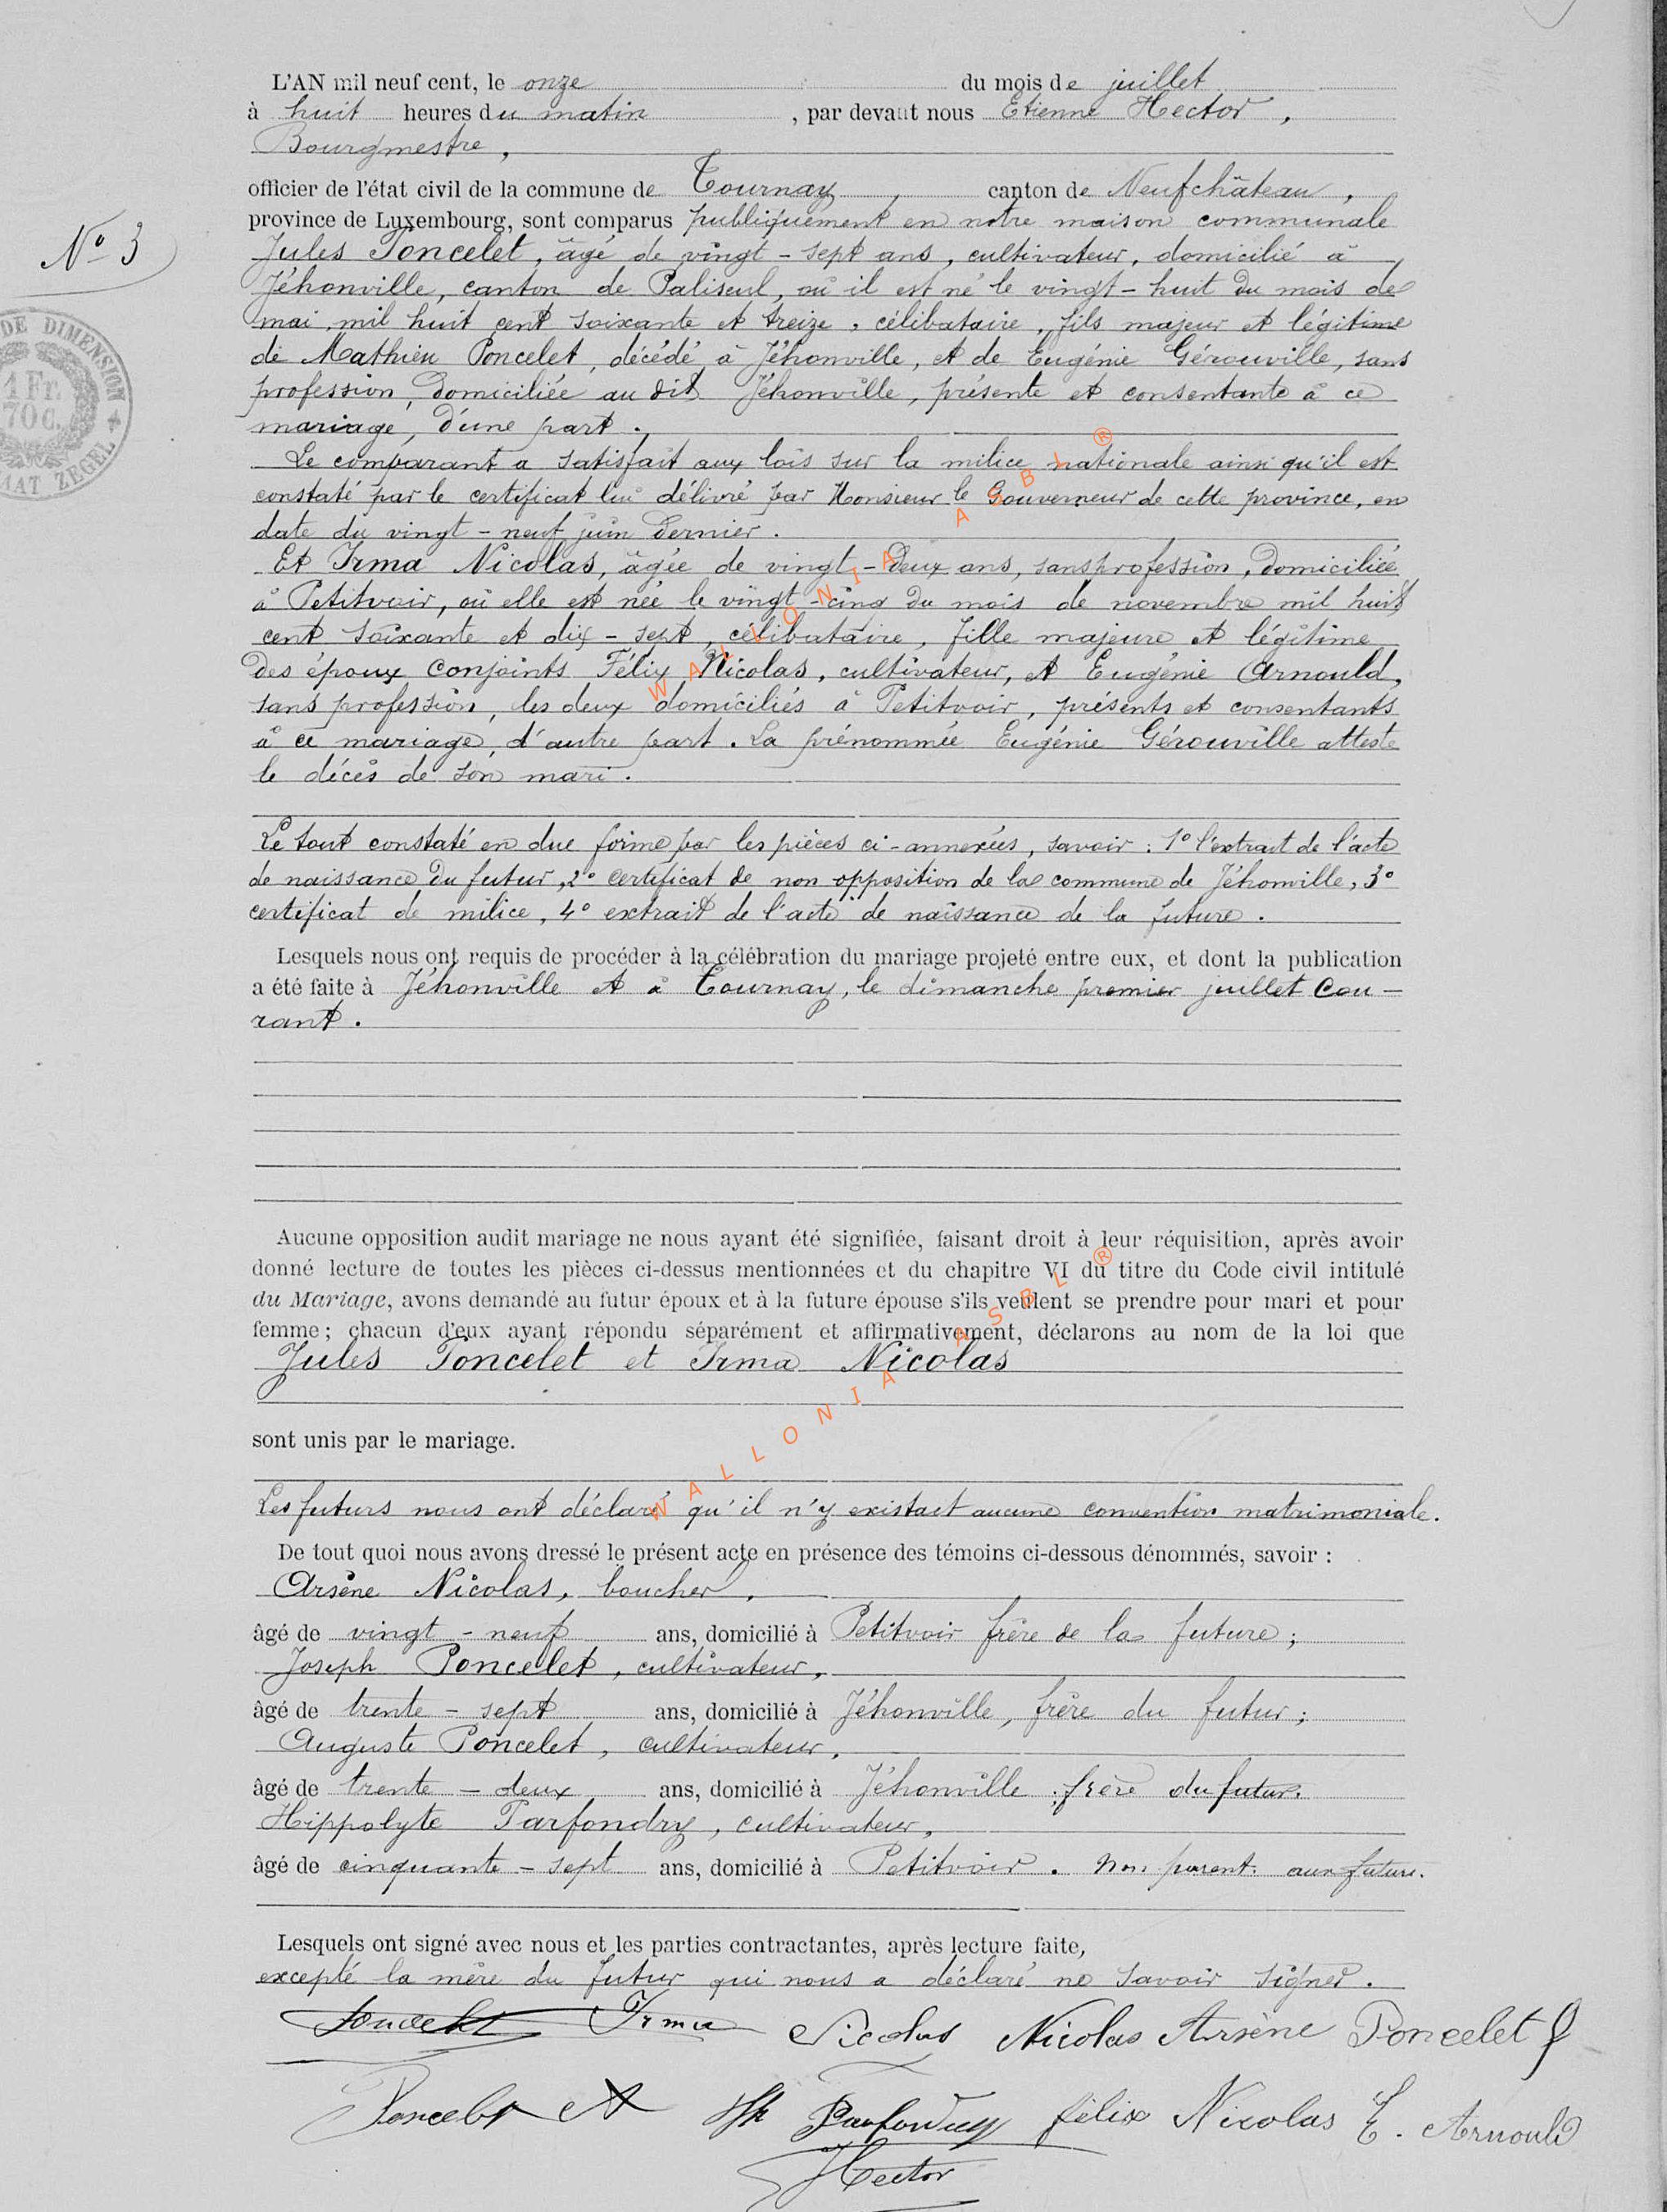 L'AN mil neuf cent, le onze du mois de juillet
à huit heures du matin, par devant nous Etienne Hector,
Bourgmestre,
officier de l'état civil de la commune de Tournay, canton de Neufchâteau,
province de Luxembourg, sont comparus publiquement en notre maison communale
N° 3
Jules Poncelet, âgé de vingt-sept ans, cultivateur, domicilié à
Jéhonville, canton de Paliseul, où il est né le vingt-huit du mois de
mai, mil huit cent soixante et treize, célibataire, fils majeur et légitime
de Mathieu Poncelet, décédé à Jéhonville, et de Eugénie Gérouville, sans
profession, domiciliée au dit Jéhonville, présente et consentante à ce
mariage, d'une part.
DE DIMENSION
1 Fr.
70 C.
MAT ZEGEL
Le comparant a satisfait aux lois sur la milice nationale ainsi qu'il est
constaté par le certificat lui délivré par Monsieur le Gouverneur de cette province, en
date du vingt-neuf juin dernier.
Et Irma Nicolas, âgée de vingt-deux ans, sans profession, domiciliée
à Petitvoir, où elle est née le vingt-cinq du mois de novembre mil huit
cent soixante et dix-sept, célibataire, fille majeure et légitime
des époux conjoints Félix Nicolas, cultivateur, et Eugénie Arnould,
sans profession, les deux domiciliés à Petitvoir, présents et consentants
à ce mariage, d'autre part. La prénommée Eugénie Gérouville atteste
le décès de son mari.
WALLONIA ASBL ®
Le tout constaté en due forme par les pièces ci-annexées, savoir : 1° l'extrait de l'acte
de naissance du futur, 2° certificat de non opposition de la commune de Jéhonville, 3°
certificat de milice, 4° extrait de l'acte de naissance de la future.
Lesquels nous ont requis de procéder à la célébration du mariage projeté entre eux, et dont la publication
a été faite à Jéhonville et à Tournay, le dimanche premier juillet cou-
rant.
Aucune opposition audit mariage ne nous ayant été signifiée, faisant droit à leur réquisition, après avoir
donné lecture de toutes les pièces ci-dessus mentionnées et du chapitre VI du titre du Code civil intitulé
du Mariage, avons demandé au futur époux et à la future épouse s'ils veulent se prendre pour mari et pour
femme; chacun d'eux ayant répondu séparément et affirmativement, déclarons au nom de la loi que
Jules Poncelet et Irma Nicolas
WALLONIA ASBL ®
sont unis par le mariage.
Les futurs nous ont déclaré qu'il n'y existait aucune convention matrimoniale.
De tout quoi nous avons dressé le présent acte en présence des témoins ci-dessous dénommés, savoir :
Arsène Nicolas, boucher,
âgé de vingt-neuf ans, domicilié à Petitvoir frère de la future;
Joseph Poncelet, cultivateur,
âgé de trente-sept ans, domicilié à Jéhonville, frère du futur;
Auguste Poncelet, cultivateur,
âgé de trente-deux ans, domicilié à Jéhonville; frère du futur.
Hippolyte Parfondry, cultivateur,
âgé de cinquante-sept ans, domicilié à Petitvoir. Non parent aux futurs.
Lesquels ont signé avec nous et les parties contractantes, après lecture faite,
excepté la mère du futur qui nous a déclaré ne savoir signer.
Poncelet Irma Nicolas Nicolas Arsène Poncelet J
Poncelet A Hp Parfondry félix Nicolas E. Arnould
Hector